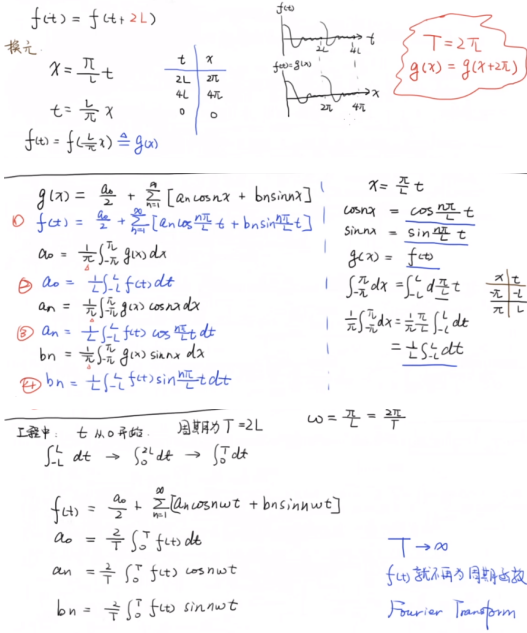 f(t) = f(t+2L)
换元
x = π/L t
t = L/π x
f(t) = f(L/π x) ≜ g(x)
t | x
2L | 2π
4L | 4π
0 | 0
f(t)
2L 4L t
f(t)=g(x)
2π 4π x
T = 2π
g(x) = g(x+2π)
g(x) = a₀/2 + ∑_{n=1}^{∞} [an cosnx + bn sinnx]
① f(t) = a₀/2 + ∑_{n=1}^{∞} [an cos nπ/L t + bn sin nπ/L t]
a₀ = 1/π ∫_{-π}^{π} g(x) dx
② a₀ = 1/L ∫_{-L}^{L} f(t) dt
an = 1/π ∫_{-π}^{π} g(x) cosnx dx
③ an = 1/L ∫_{-L}^{L} f(t) cos nπ/L t dt
bn = 1/π ∫_{-π}^{π} g(x) sinnx dx
④ bn = 1/L ∫_{-L}^{L} f(t) sin nπ/L t dt
x = π/L t
cosnx = cos nπ/L t
sinnx = sin nπ/L t
g(x) = f(t)
∫_{-π}^{π} dx = ∫_{-L}^{L} d π/L t
x | t
-π | -L
π | L
1/π ∫_{-π}^{π} dx = 1/π π/L ∫_{-L}^{L} dt
= 1/L ∫_{-L}^{L} dt
工程中: t 从0开始 周期为 T=2L
ω = π/L = 2π/T
∫_{-L}^{L} dt → ∫_0^{2L} dt → ∫_0^T dt
f(t) = a₀/2 + ∑_{n=1}^{∞} [an cosnωt + bn sinnωt]
a₀ = 2/T ∫_0^T f(t) dt
an = 2/T ∫_0^T f(t) cosnωt
bn = 2/T ∫_0^T f(t) sinnωt
T → ∞
f(t) 就不再为周期函数
Fourier Transform